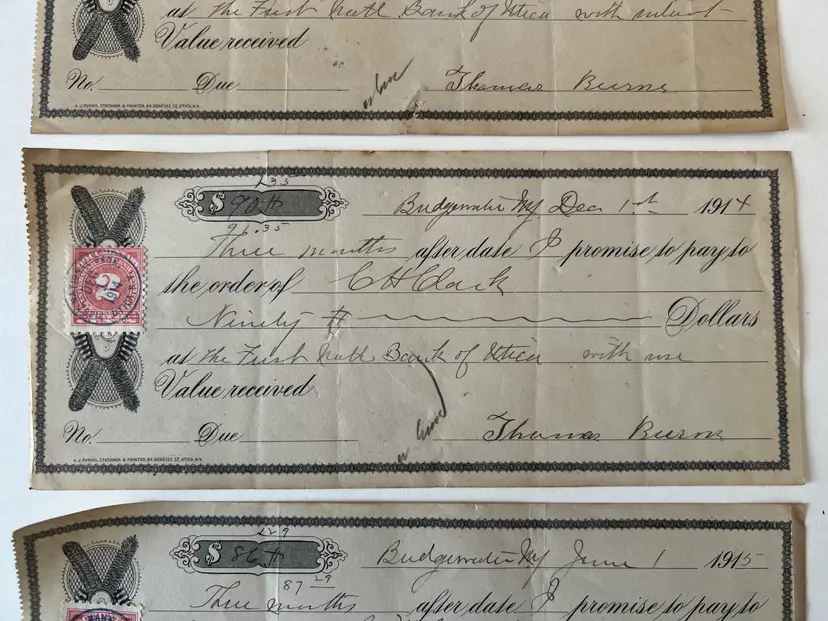 at the First Natl Bank of Utica with interest
Value received
No. Due Thomas Burns
A.J. PURVIS, STATIONER & PRINTER, 84 GENESEE ST. UTICA, N.Y.
1.35
$ 90 Bridgewater NY Dec 1st 1914
91.35
Three months after date I promise to pay to
the order of C H Clack
Ninety Dollars
at the First Natl Bank of Utica with use
Value received
No. Due Thomas Burns
A.J. PURVIS, STATIONER & PRINTER, 84 GENESEE ST. UTICA, N.Y.
1.29
$ 86 Bridgewater NY June 1 1915
87 29
Three months after date I promise to pay to